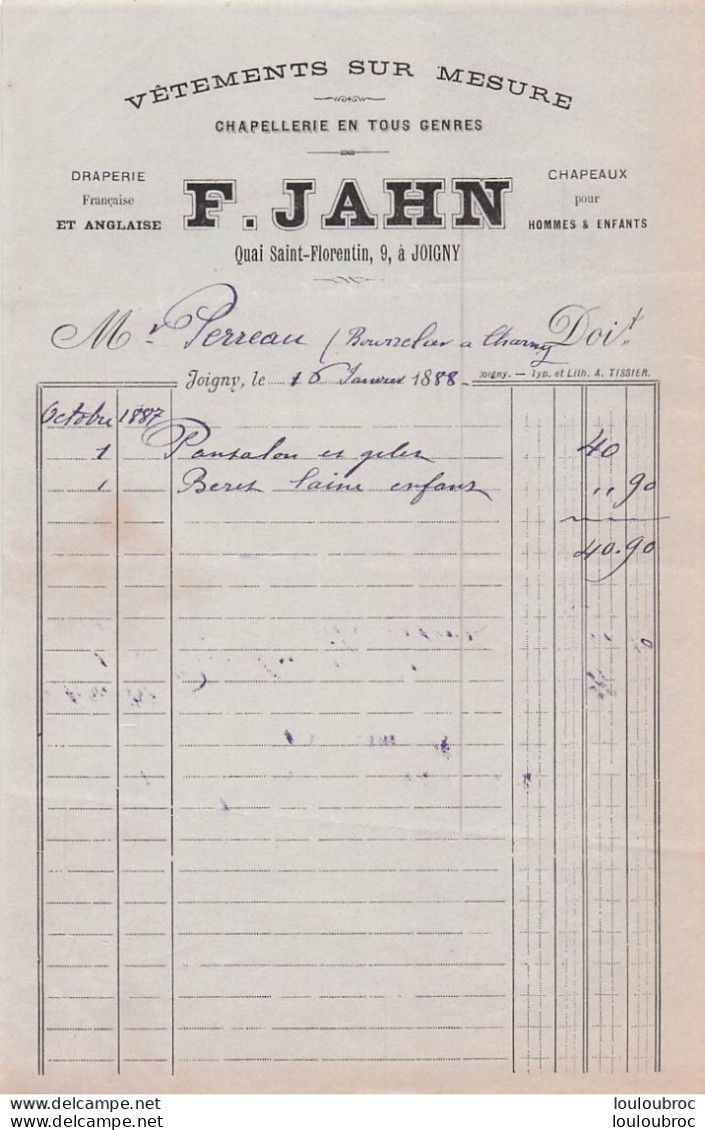 VÊTEMENTS SUR MESURE
CHAPELLERIE EN TOUS GENRES
DRAPERIE
Française
ET ANGLAISE
F. JAHN
CHAPEAUX
pour
HOMMES & ENFANTS
Quai Saint-Florentin, 9, à JOIGNY
Mr Perreau (Bourrelier a Charny Doit
Joigny. — Typ. et Lith. A. TISSIER.
Joigny, le 16 Janvier 1888
Octobre 1887
1 Pantalon et gilet 40
1 Beret laine enfant " 90
40.90
www.delcampe.net louloubroc
www.delcampe.net louloubroc